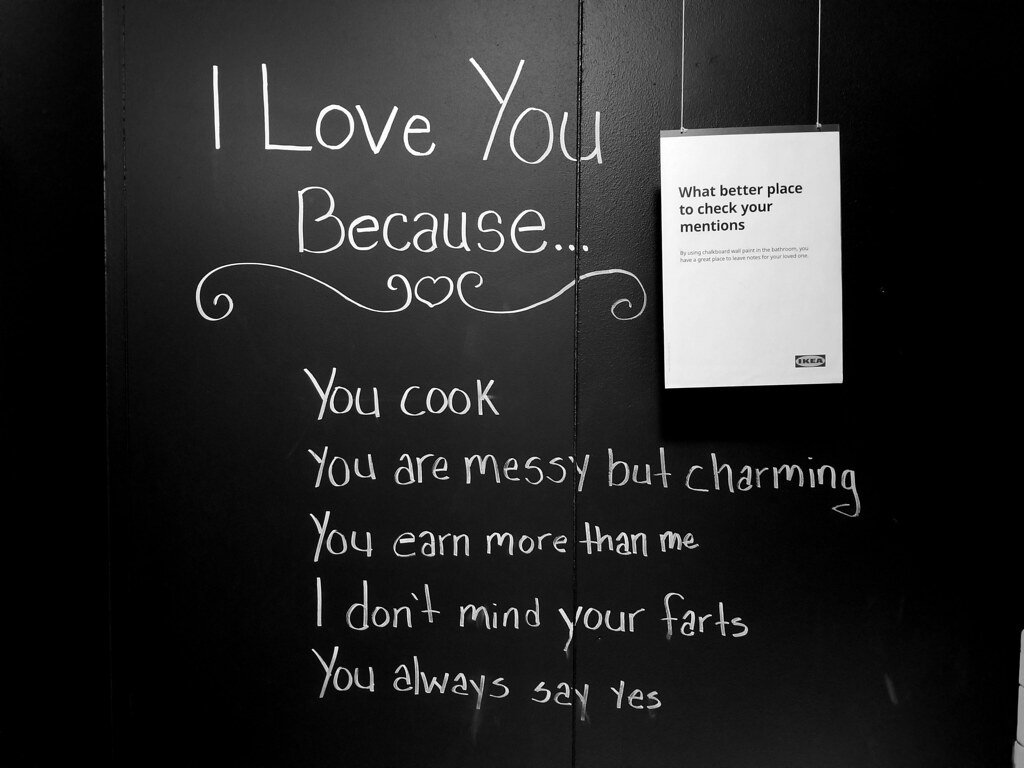 I Love You
Because...
You cook
You are messy but charming
You earn more than me
I don't mind your farts
You always say yes
What better place
to check your
mentions
By using chalkboard wall paint in the bathroom, you
have a great place to leave notes for your loved one.
IKEA